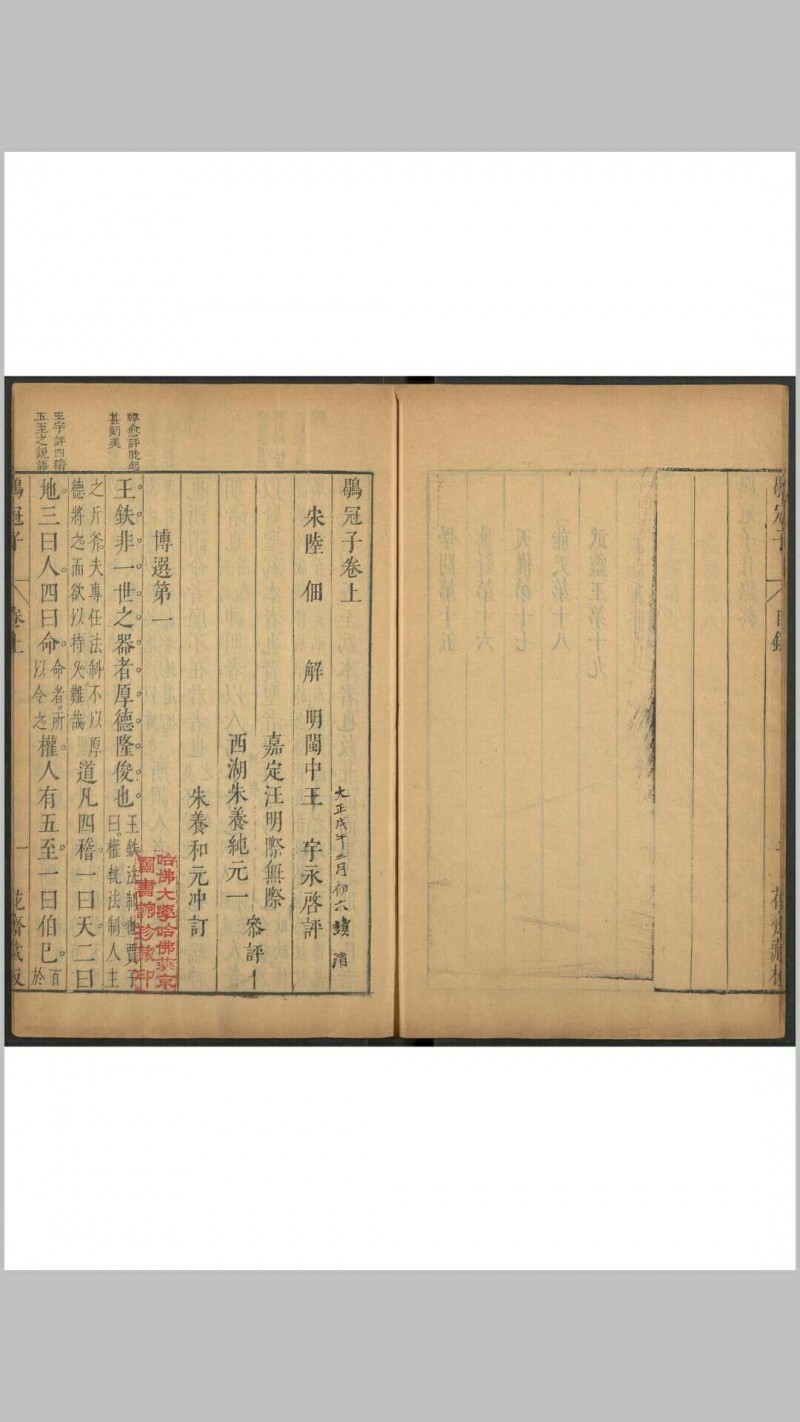 鶡冠子
目錄
一
花齋藏板
學問第十五
世賢第十六
天權第十七
能天第十八
武靈王第十九
鶡冠子卷上
大正戊午二月初六讀
宋陸佃解 明閩中王宇永啓評
嘉定汪明際無際
西湖朱養純元一
參評
朱養和元冲訂
博選第一
王鈇非一世之器者厚德隆俊也王鈇法制也賈子曰權執法制人主
之斤斧夫專任法制不以厚德將之而欲以持久難哉道凡四稽一曰天二曰
地三曰人四曰命命者所以令之權人有五至一曰伯己百於
韓愈評陡起
甚闊美
王宇評四稽
五至之說
鶡冠子
卷上
一
花齋藏板
哈佛大學哈佛燕京
圖書館珍藏印